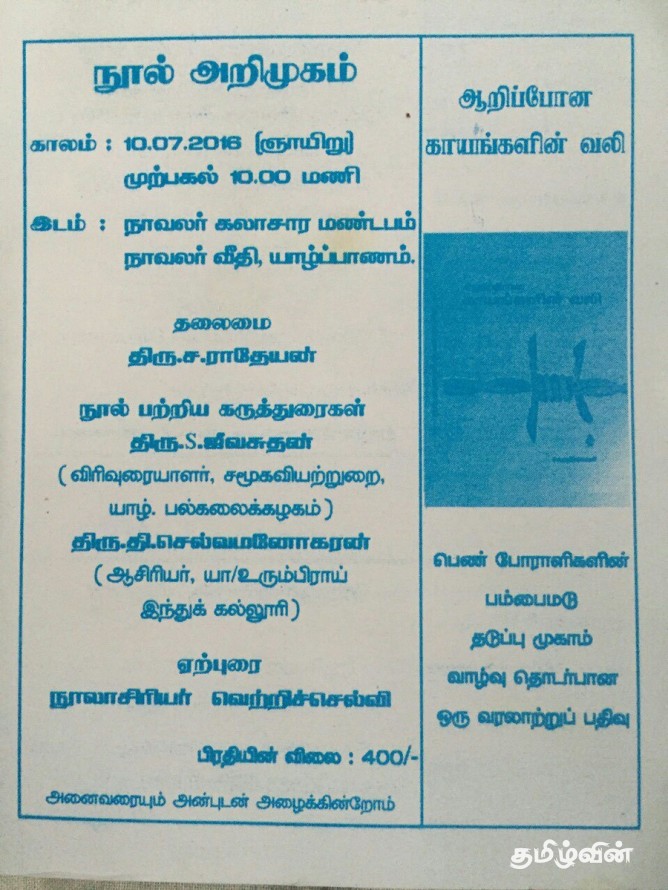 நூல் அறிமுகம்
காலம் : 10.07.2016 (ஞாயிறு)
முற்பகல் 10.00 மணி
இடம் : நாவலர் கலாசார மண்டபம்
நாவலர் வீதி, யாழ்ப்பாணம்.
தலைமை
திரு.ச.ராதேயன்
நூல் பற்றிய கருத்துரைகள்
திரு.S.ஜீவசுதன்
(விரிவுரையாளர், சமூகவியற்றுறை,
யாழ். பல்கலைக்கழகம்)
திரு.தி.செல்வமனோகரன்
(ஆசிரியர், யா/உரும்பிராய்
இந்துக் கல்லூரி)
ஏற்புரை
நூலாசிரியர் வெற்றிச்செல்வி
பிரதியின் விலை : 400/-
அனைவரையும் அன்புடன் அழைக்கின்றோம்
ஆறிப்போன
காயங்களின் வலி
காயங்களின் வலி
பெண் போராளிகளின்
பம்பைமடு
தடுப்பு முகாம்
வாழ்வு தொடர்பான
ஒரு வரலாற்றுப் பதிவு
தமிழ்வின்